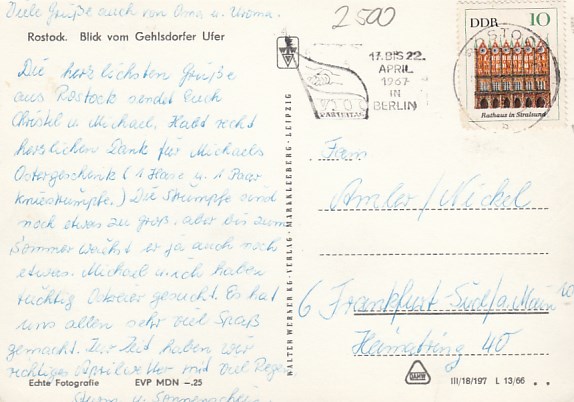 Viele Grüße auch von Oma u. Uroma.
Rostock. Blick vom Gehlsdorfer Ufer
Die herzlichsten Grüße
aus Rostock sendet Euch
Christel u. Michael. Habt recht
herzlichen Dank für Michaels
Ostergeschenk (1 Hase u. 1 Paar
Kniestrümpfe.) Die Strümpfe sind
noch etwas zu groß, aber bis zum
Sommer wächst er ja auch noch
etwas. Michael u. ich haben
tüchtig Ostereier gesucht. Es hat
uns allen sehr viel Spaß
gemacht. Zur Zeit haben wir
richtiges Aprilwetter mit viel Regen,
Sturm u. Sonnenschein.
Echte Fotografie EVP MDN –.25
WALTER WERNER KG. - VERLAG - MARKKLEEBERG - LEIPZIG
2500
17. BIS 22.
APRIL
1967
IN
BERLIN
PARTEITAG
DDR 10
Rathaus in Stralsund
Fam
Amler / Nickel
6 Frankfurt-Süd/a. Main 70
Heimatring 40
III/18/197 L 13/66 . .